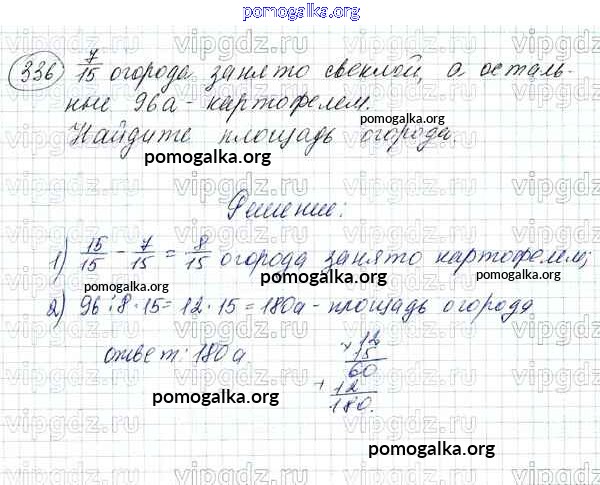 pomogalka.org
336) 7/15 огорода занято свеклой, а осталь-
ные 96а - картофелем.
Найдите площадь огорода.
pomogalka.org
pomogalka.org
Решение:
1) 15/15 - 7/15 = 8/15 огорода занято картофелем;
pomogalka.org
pomogalka.org
pomogalka.org
2) 96:8·15=12·15=180а - площадь огорода
ответ: 180а.
× 12
15
60
+ 12
180.
pomogalka.org
pomogalka.org
vipgdz.ru